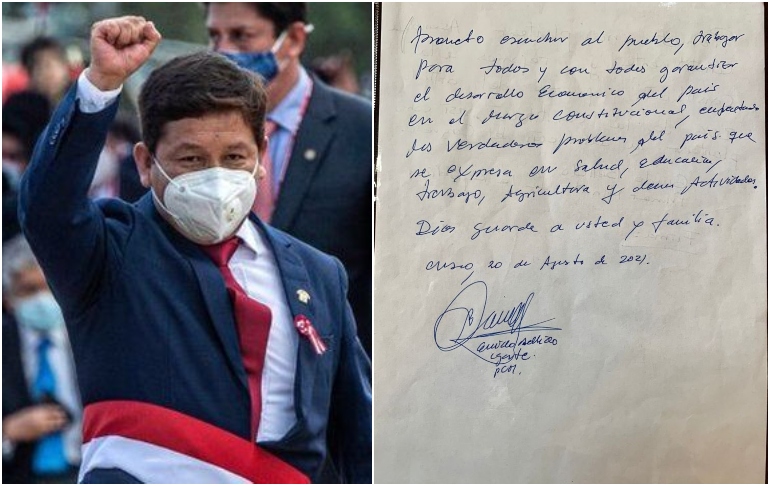 Prometo escuchar al pueblo, trabajar
para todos y con todos garantizar
el desarrollo Economico del país
en el Marco constitucional,
los verdaderos problemas del país que
se expresa en salud, educación,
trabajo, Agricultura y demas Actividades.
Dios guarde a usted y familia.
Cusco, 20 de Agosto de 2021.
Guido Bellido
Ugarte.
PCM.